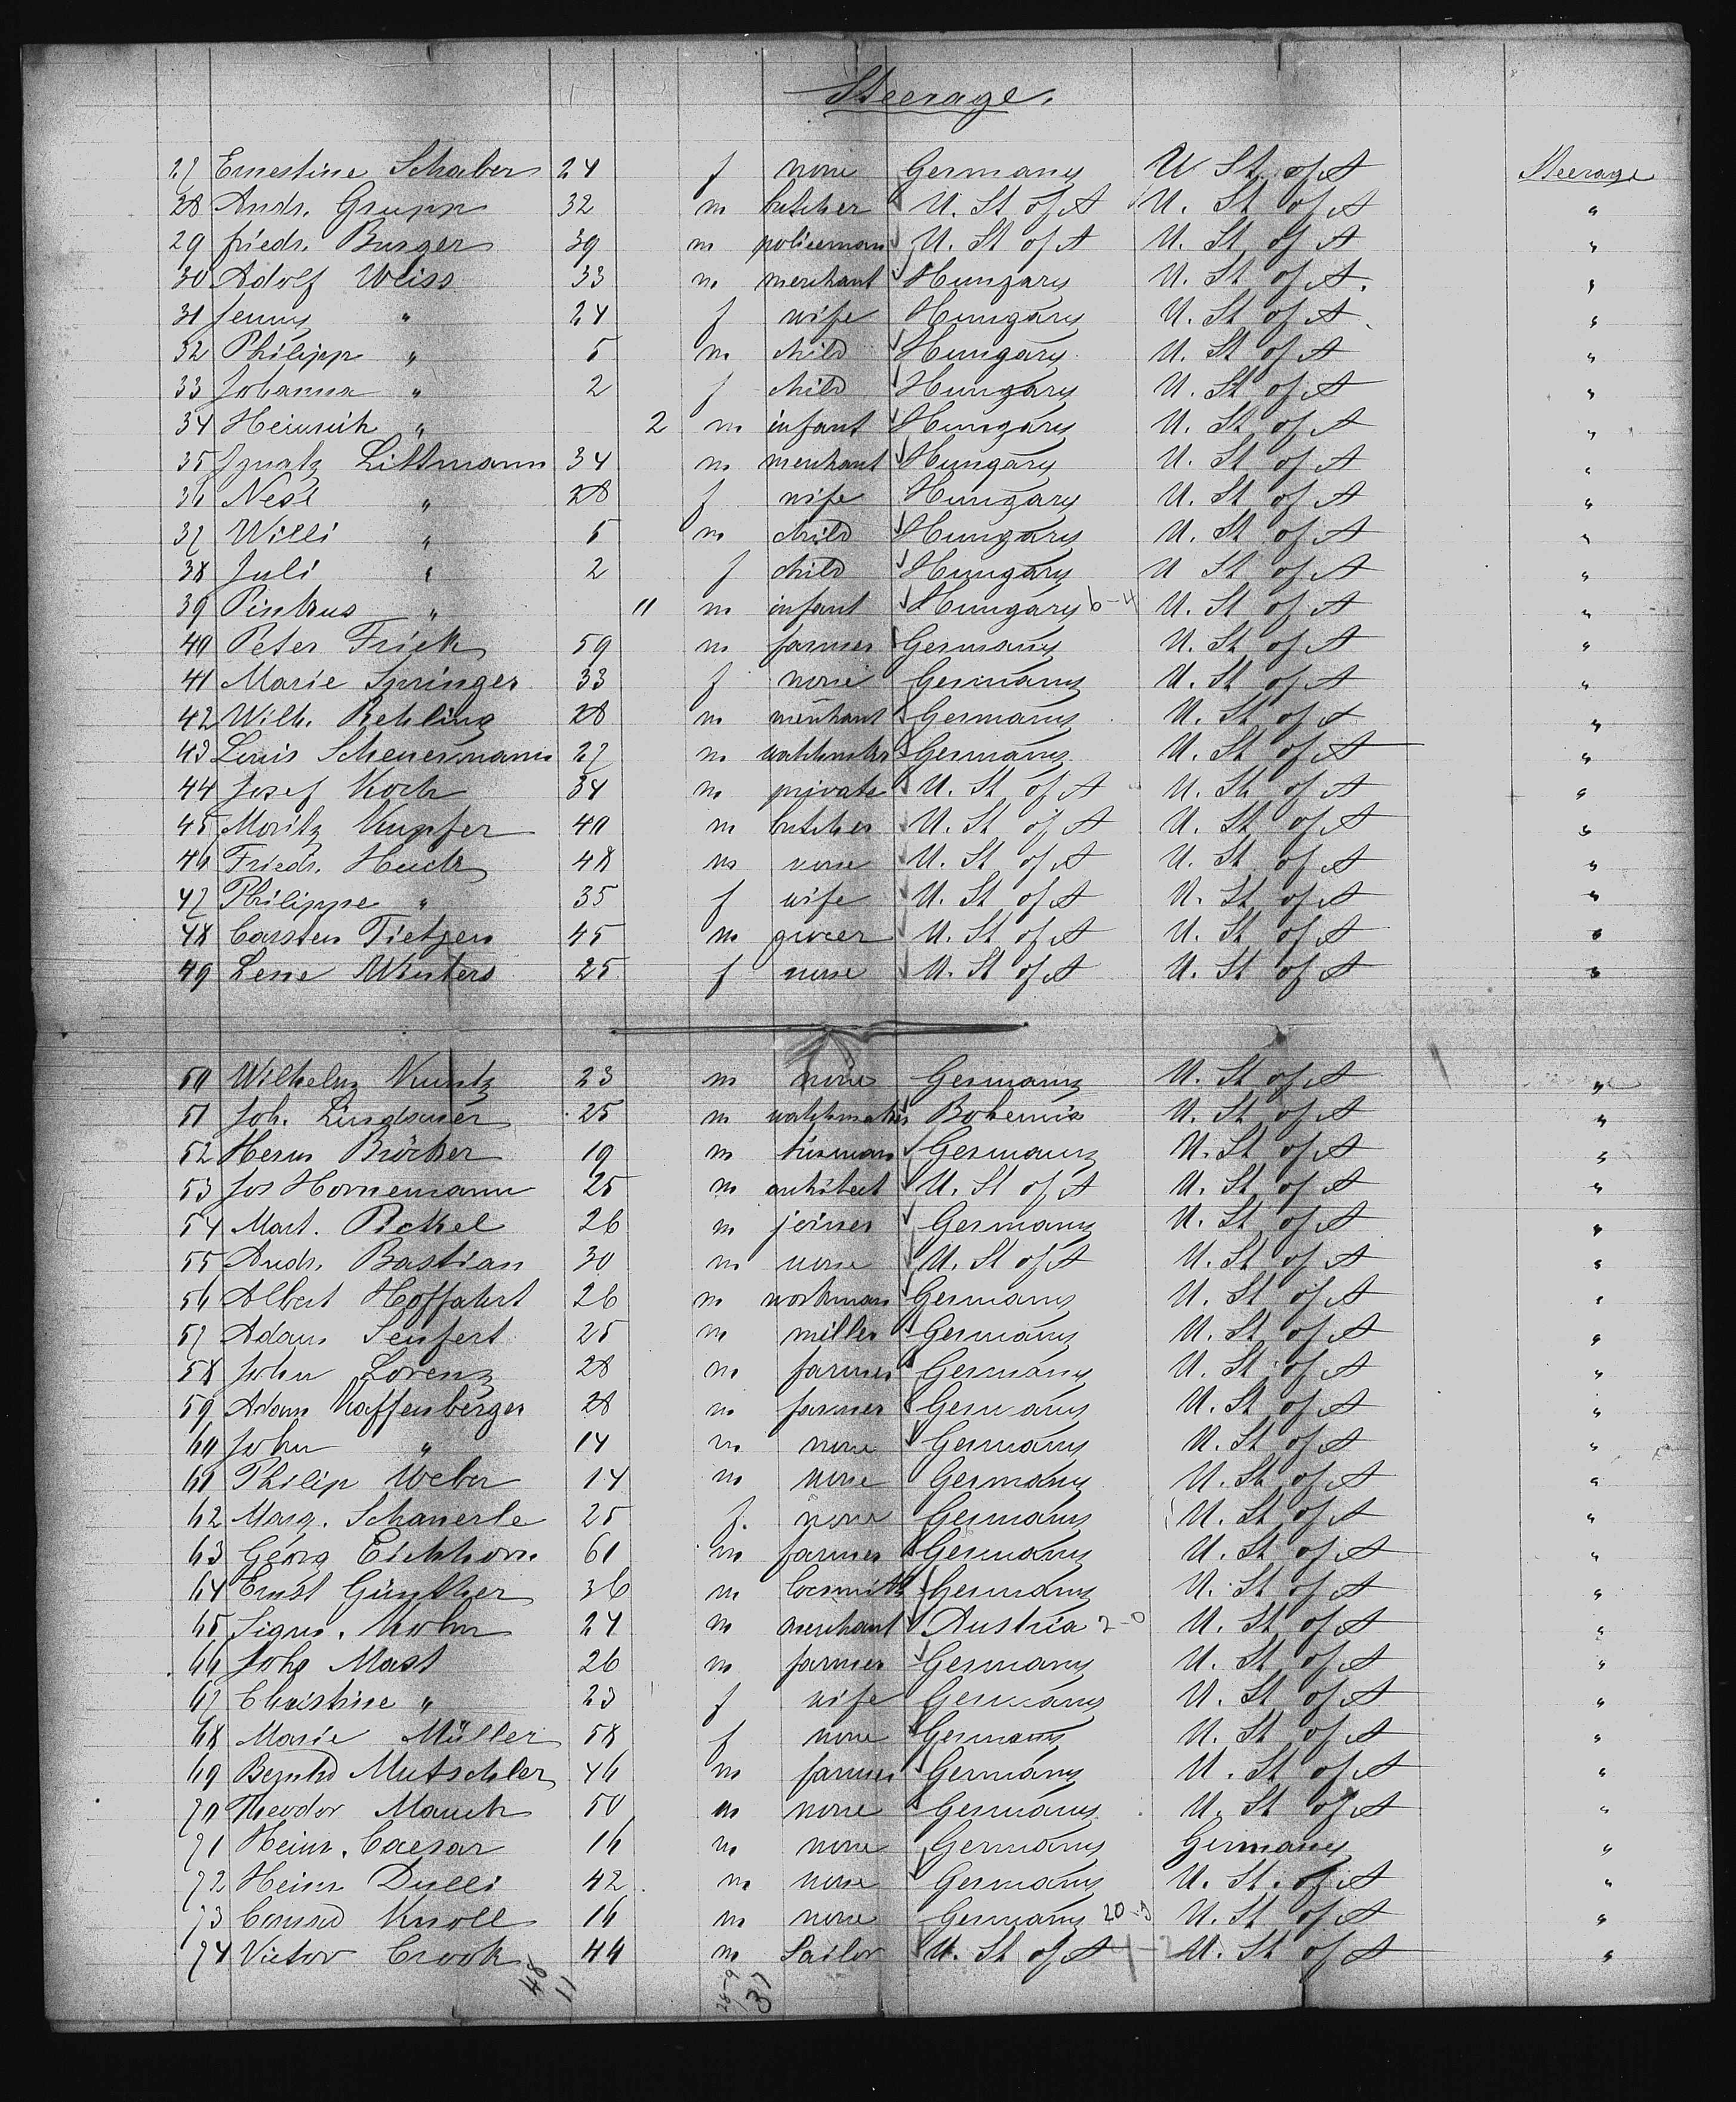 Steerage.
27 Ernestine Schaber 24 f none Germany U St. of A Steerage
28 Andr. Grupp 32 m butcher U. St of A U. St of A "
29 friedr. Burger 39 m policeman U. St of A U. St of A "
30 Adolf Weiss 33 m merchant Hungary U. St of A. "
31 Jenny " 24 f wife Hungary U. St of A "
32 Philipp " 5 m child Hungary U. St of A "
33 Johanna " 2 f child Hungary U. St of A "
34 Heinrich " 2 m infant Hungary U. St of A "
35 Ignatz Littmann 34 m merchant Hungary U. St of A "
36 Nesl " 28 f wife Hungary U. St of A "
37 Willi " 5 m child Hungary U. St of A "
38 Juli " 2 f child Hungary U St of A "
39 Pinkus " 11 m infant Hungary 6-4 U. St of A "
40 Peter Frick 59 m farmer Germany U. St of A "
41 Marie Springer 33 f none Germany U. St of A "
42 Wilh. Rehling 28 m merchant Germany U. St of A "
43 Louis Scheuermann 27 m watchmkr Germany U. St of A "
44 Josef Koch 34 m private U. St of A U. St of A "
45 Moritz Kupfer 40 m butcher U. St of A U. St of A "
46 Friedr. Huck 48 m none U. St of A U. St of A "
47 Philippe " 35 f wife U. St of A U. St of A "
48 Carsten Tietjen 45 m grocer U. St of A U. St of A "
49 Lene Winters 25 f none U. St of A U. St of A "
50 Wilhelm Kuntz 23 m none Germany U. St of A "
51 Joh. Lindauer 25 m watchmaker Bohemia U. St of A "
52 Herm Bröcker 19 m Germany U. St of A "
53 Jos Hornemann 25 m architect U. St of A U. St of A "
54 Mart. Pickel 26 m joiner Germany U. St of A "
55 Andr. Bastian 30 m none U. St of A U. St of A "
56 Albert Hoffahrt 26 m workman Germany U. St of A "
57 Adam Seufert 25 m miller Germany U. St of A "
58 John Lorenz 28 m farmer Germany U. St of A "
59 Adam Kaffenberger 28 m farmer Germany U. St of A "
60 John " 14 m none Germany U. St of A "
61 Philip Weber 14 m none Germany U. St of A "
62 Marg. Schanerle 25 f. none Germany U. St of A "
63 Georg Eichhorn 61 m farmer Germany U. St of A "
64 Ernst Günther 36 m locsmith Germany U. St of A "
65 Sigm. Kohn 24 m merchant Austria 2-0 U. St of A "
66 Joh. Mast 26 m farmer Germany U. St of A "
67 Christine " 23 f wife Germany U. St of A "
68 Marie Müller 58 f none Germany U. St of A "
69 Bernhd Mutschler 46 m farmer Germany U. St of A "
70 Theodor Mauch 50 m none Germany U. St of A "
71 Heinr. Caesar 16 m none Germany Germany "
72 Heinr Dulli 42 m none Germany U. St. of A "
73 Conrad Knoll 16 m none Germany 20-9 U. St of A "
74 Victor Crook 44 m Sailor U. St of A U. St of A "
48
11
28-9
37